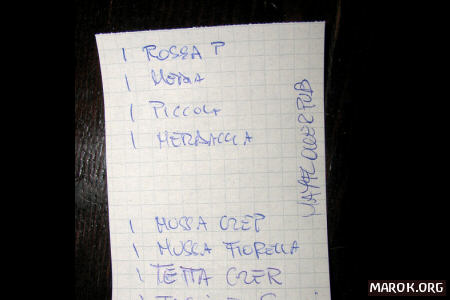 1 ROSSA P
1 MEDIA
1 PICCOLA
1 MERDACCIA
1 MUSSA CZEP
1 MUSSA FIORELLA
1 TETTA CZER
1
MAROK.ORG